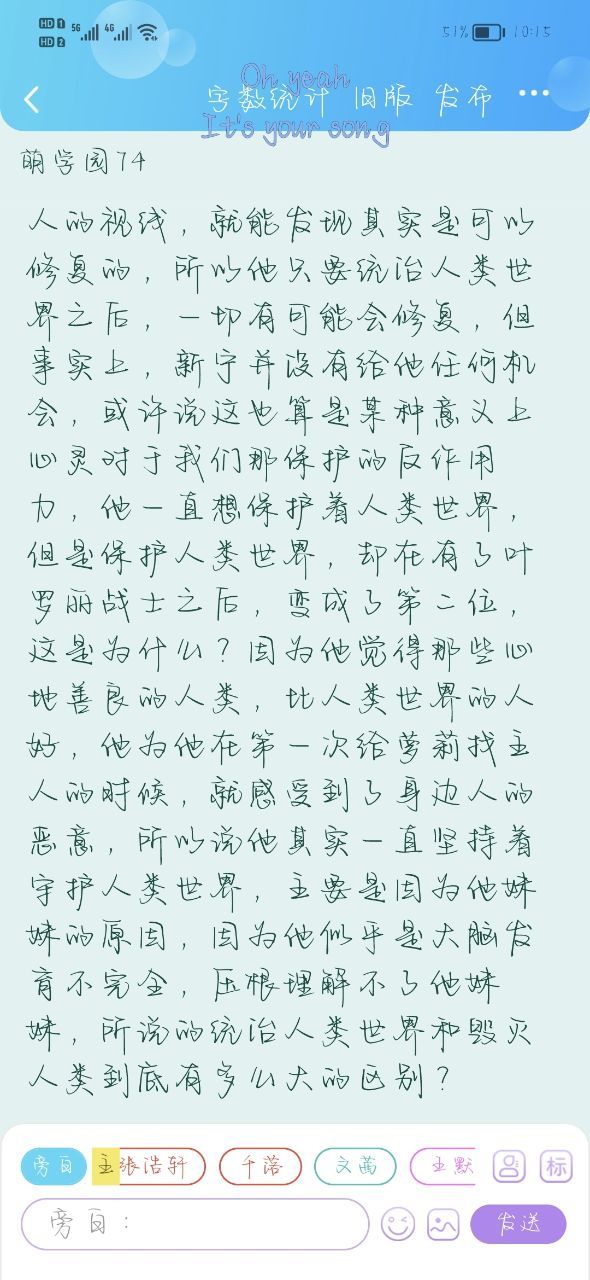 HD 1 5G 4G HD 2 51% 10:15
Oh yeah
字数统计 旧版 发布 ...
It's your song
萌学园74
人的视线，就能发现其实是可以
修复的，所以他只要统治人类世
界之后，一切有可能会修复，但
事实上，新宁并没有给他任何机
会，或许说这也算是某种意义上
心灵对于我们那保护的反作用
力，他一直想保护着人类世界，
但是保护人类世界，却在有了叶
罗丽战士之后，变成了第二位，
这是为什么？因为他觉得那些心
地善良的人类，比人类世界的人
好，他为他在第一次给萝莉找主
人的时候，就感受到了身边人的
恶意，所以说他其实一直坚持着
守护人类世界，主要是因为他妹
妹的原因，因为他似乎是大脑发
育不完全，压根理解不了他妹
妹，所说的统治人类世界和毁灭
人类到底有多么大的区别？
旁白 主 张浩轩 千落 文茜 王默 标
旁白： 发送